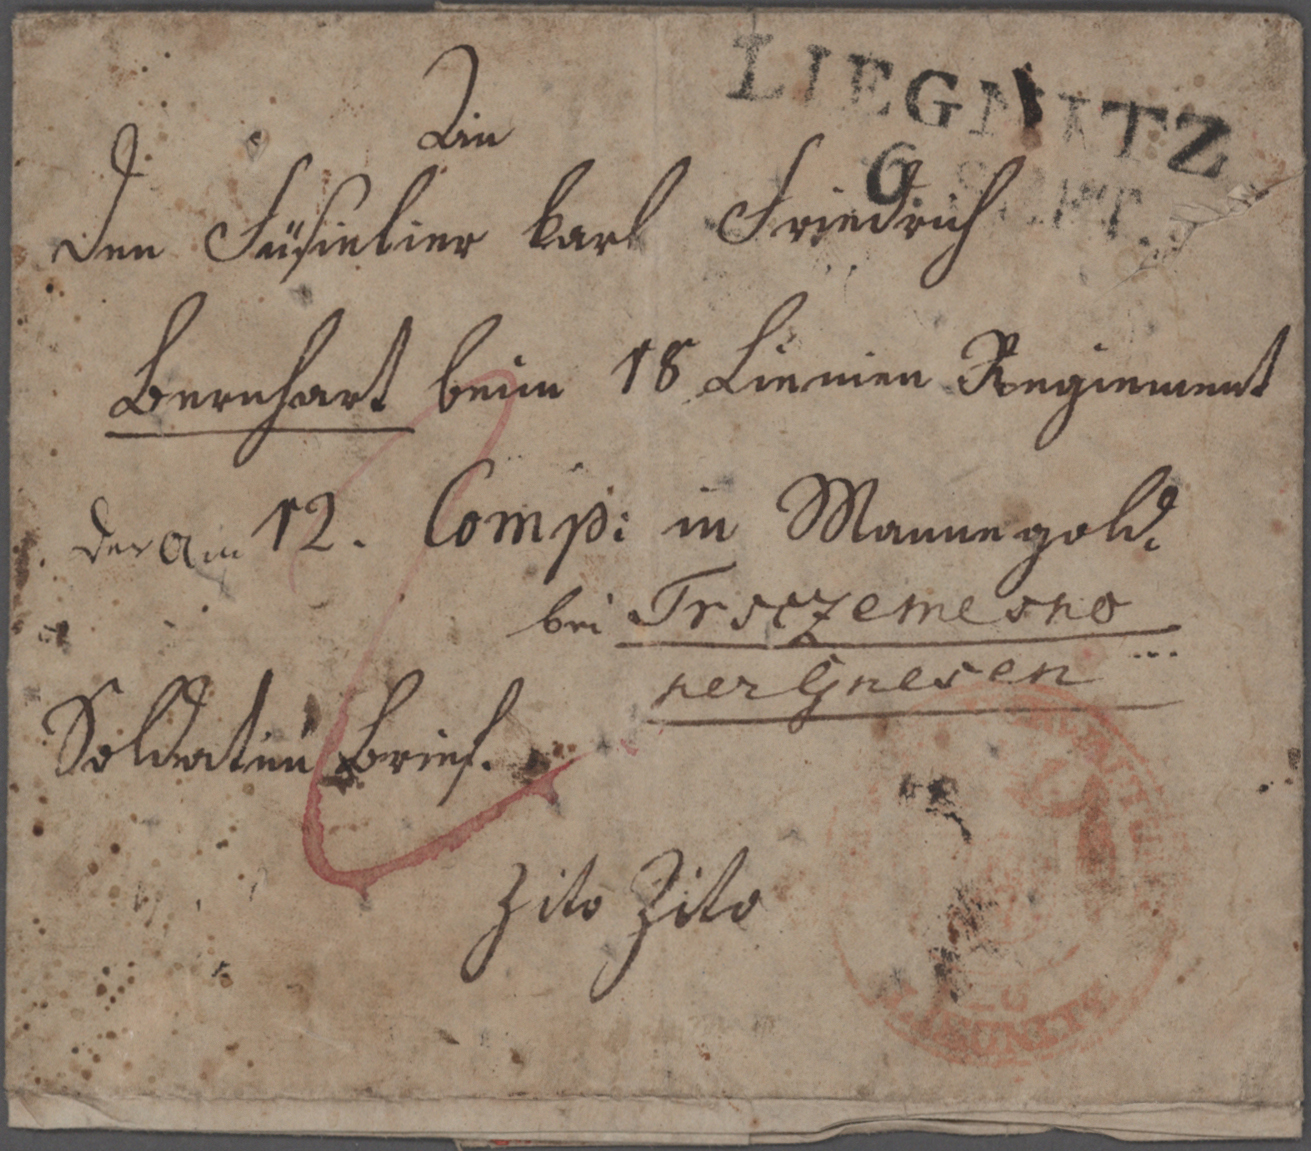 LIEGNITZ
6 SEPT.
An
Den Füsielier Karl Friedrich
Bernhart beim 18 Liennien Regiement
der 12. Comp: in Mannegold.
bei Trsczemesno
per Gnesen
Soldatten Brief.
Zito Zito
LIEGNITZ